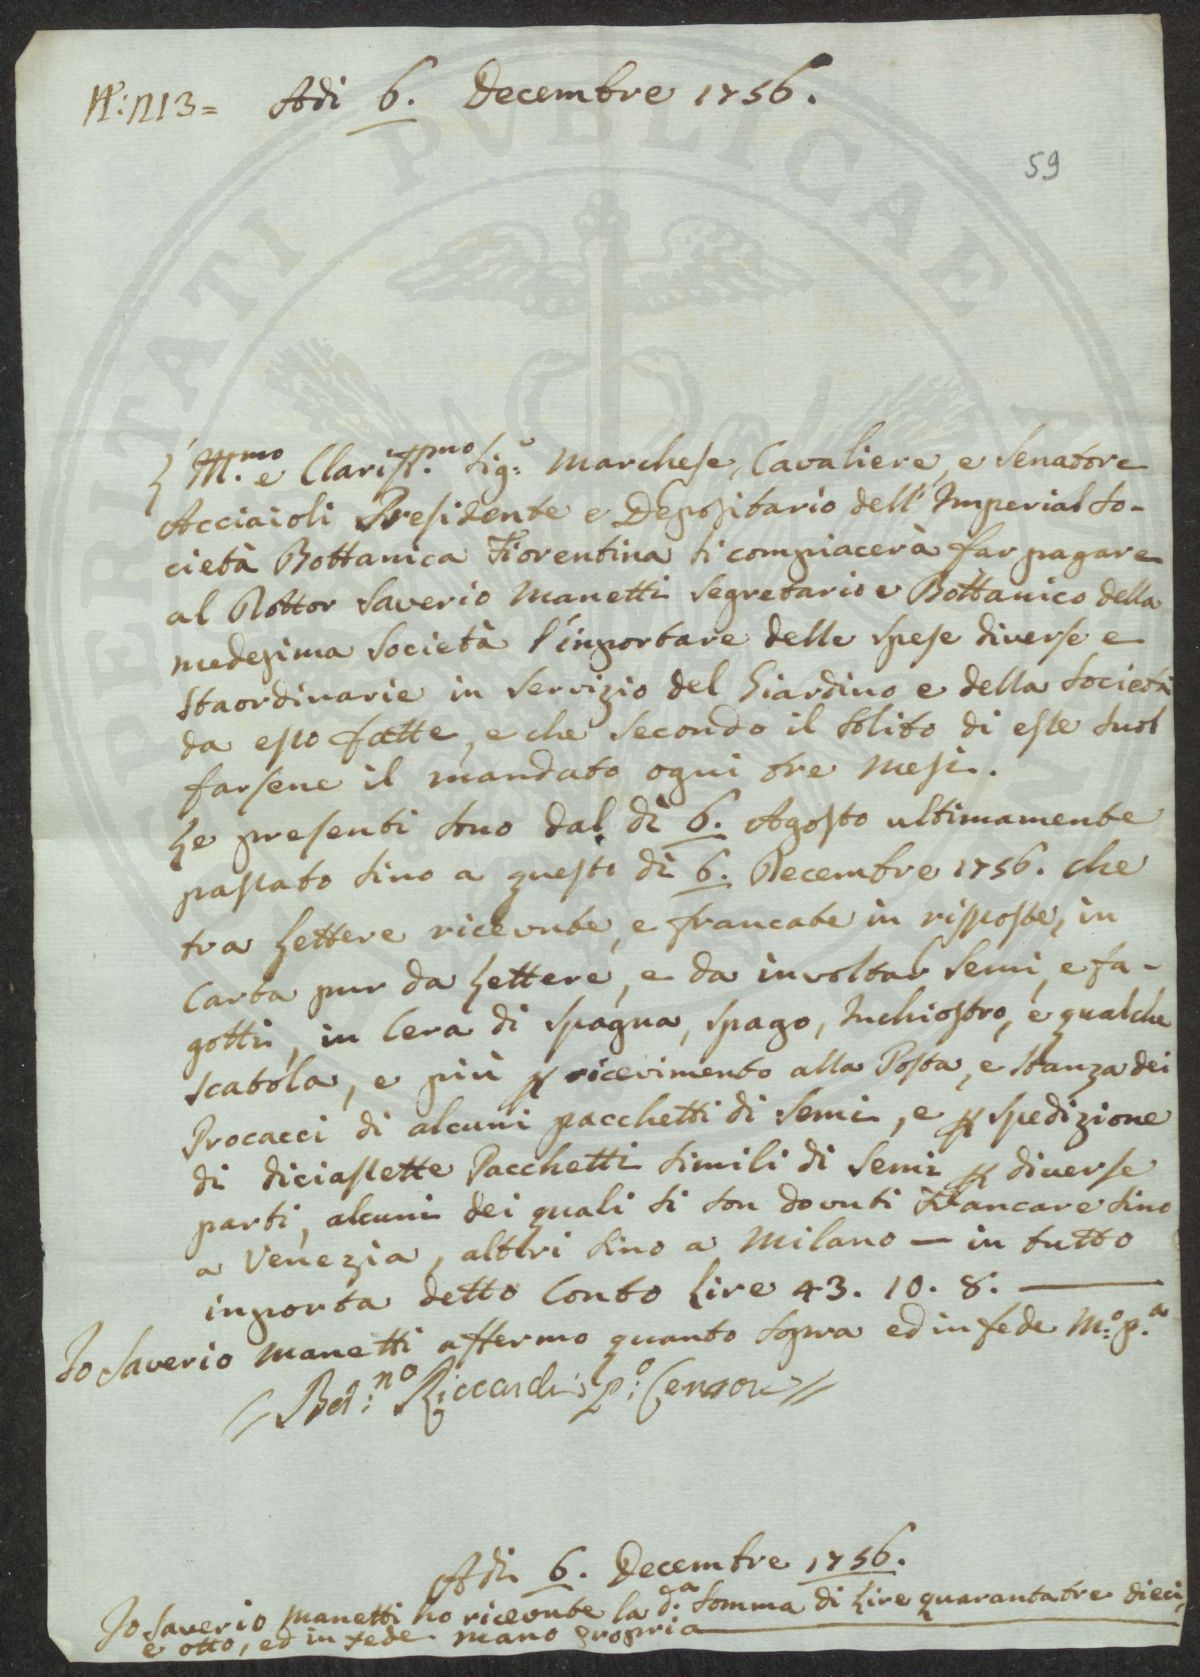 Adi 6. Decembre 1756.
59
L'Ill.mo e Clariss.mo Sig.r Marchese, Cavaliere, e Senatore
Acciaioli Presidente e Depositario dell'Imperial So-
cietà Bottanica Fiorentina si compiacerà far pagare
al Dottor Saverio Manetti Segretario e Bottanico della
medesima Società l'importare delle spese diverse e
staordinarie in servizio del Giardino e della Società
da esso fatte, e che secondo il solito di esse suol
farsene il mandato ogni tre Mesi.
Le presenti sono dal dì 6. Agosto ultimamente
passato sino a questo dì 6. Decembre 1756. che
tra Lettere ricevute, e francate in risposte, in
Carta pur da Lettere, e da involtar Semi, e fa-
gotti, in Cera di Spagna, spago, Inchiostro, e qualche
scatola, e più p ricevimento alla Posta, e Stanza dei
Procacci di alcuni pacchetti di Semi, e p spedizione
di diciassette Pacchetti simili di Semi p diverse
parti, alcuni dei quali si son dovuti francare sino
a Venezia, altri sino a Milano — in tutto
importa detto Conto Lire 43. 10. 8.
Io Saverio Manetti affermo quanto sopra ed in fede M.o p.a
Riccardi p.o Censore
Adi 6. Decembre 1756.
Io Saverio Manetti ho ricevute la d.a Somma di Lire quarantatre dieci,
e otto, ed in fede mano propria
PERITATI PVBLICAE